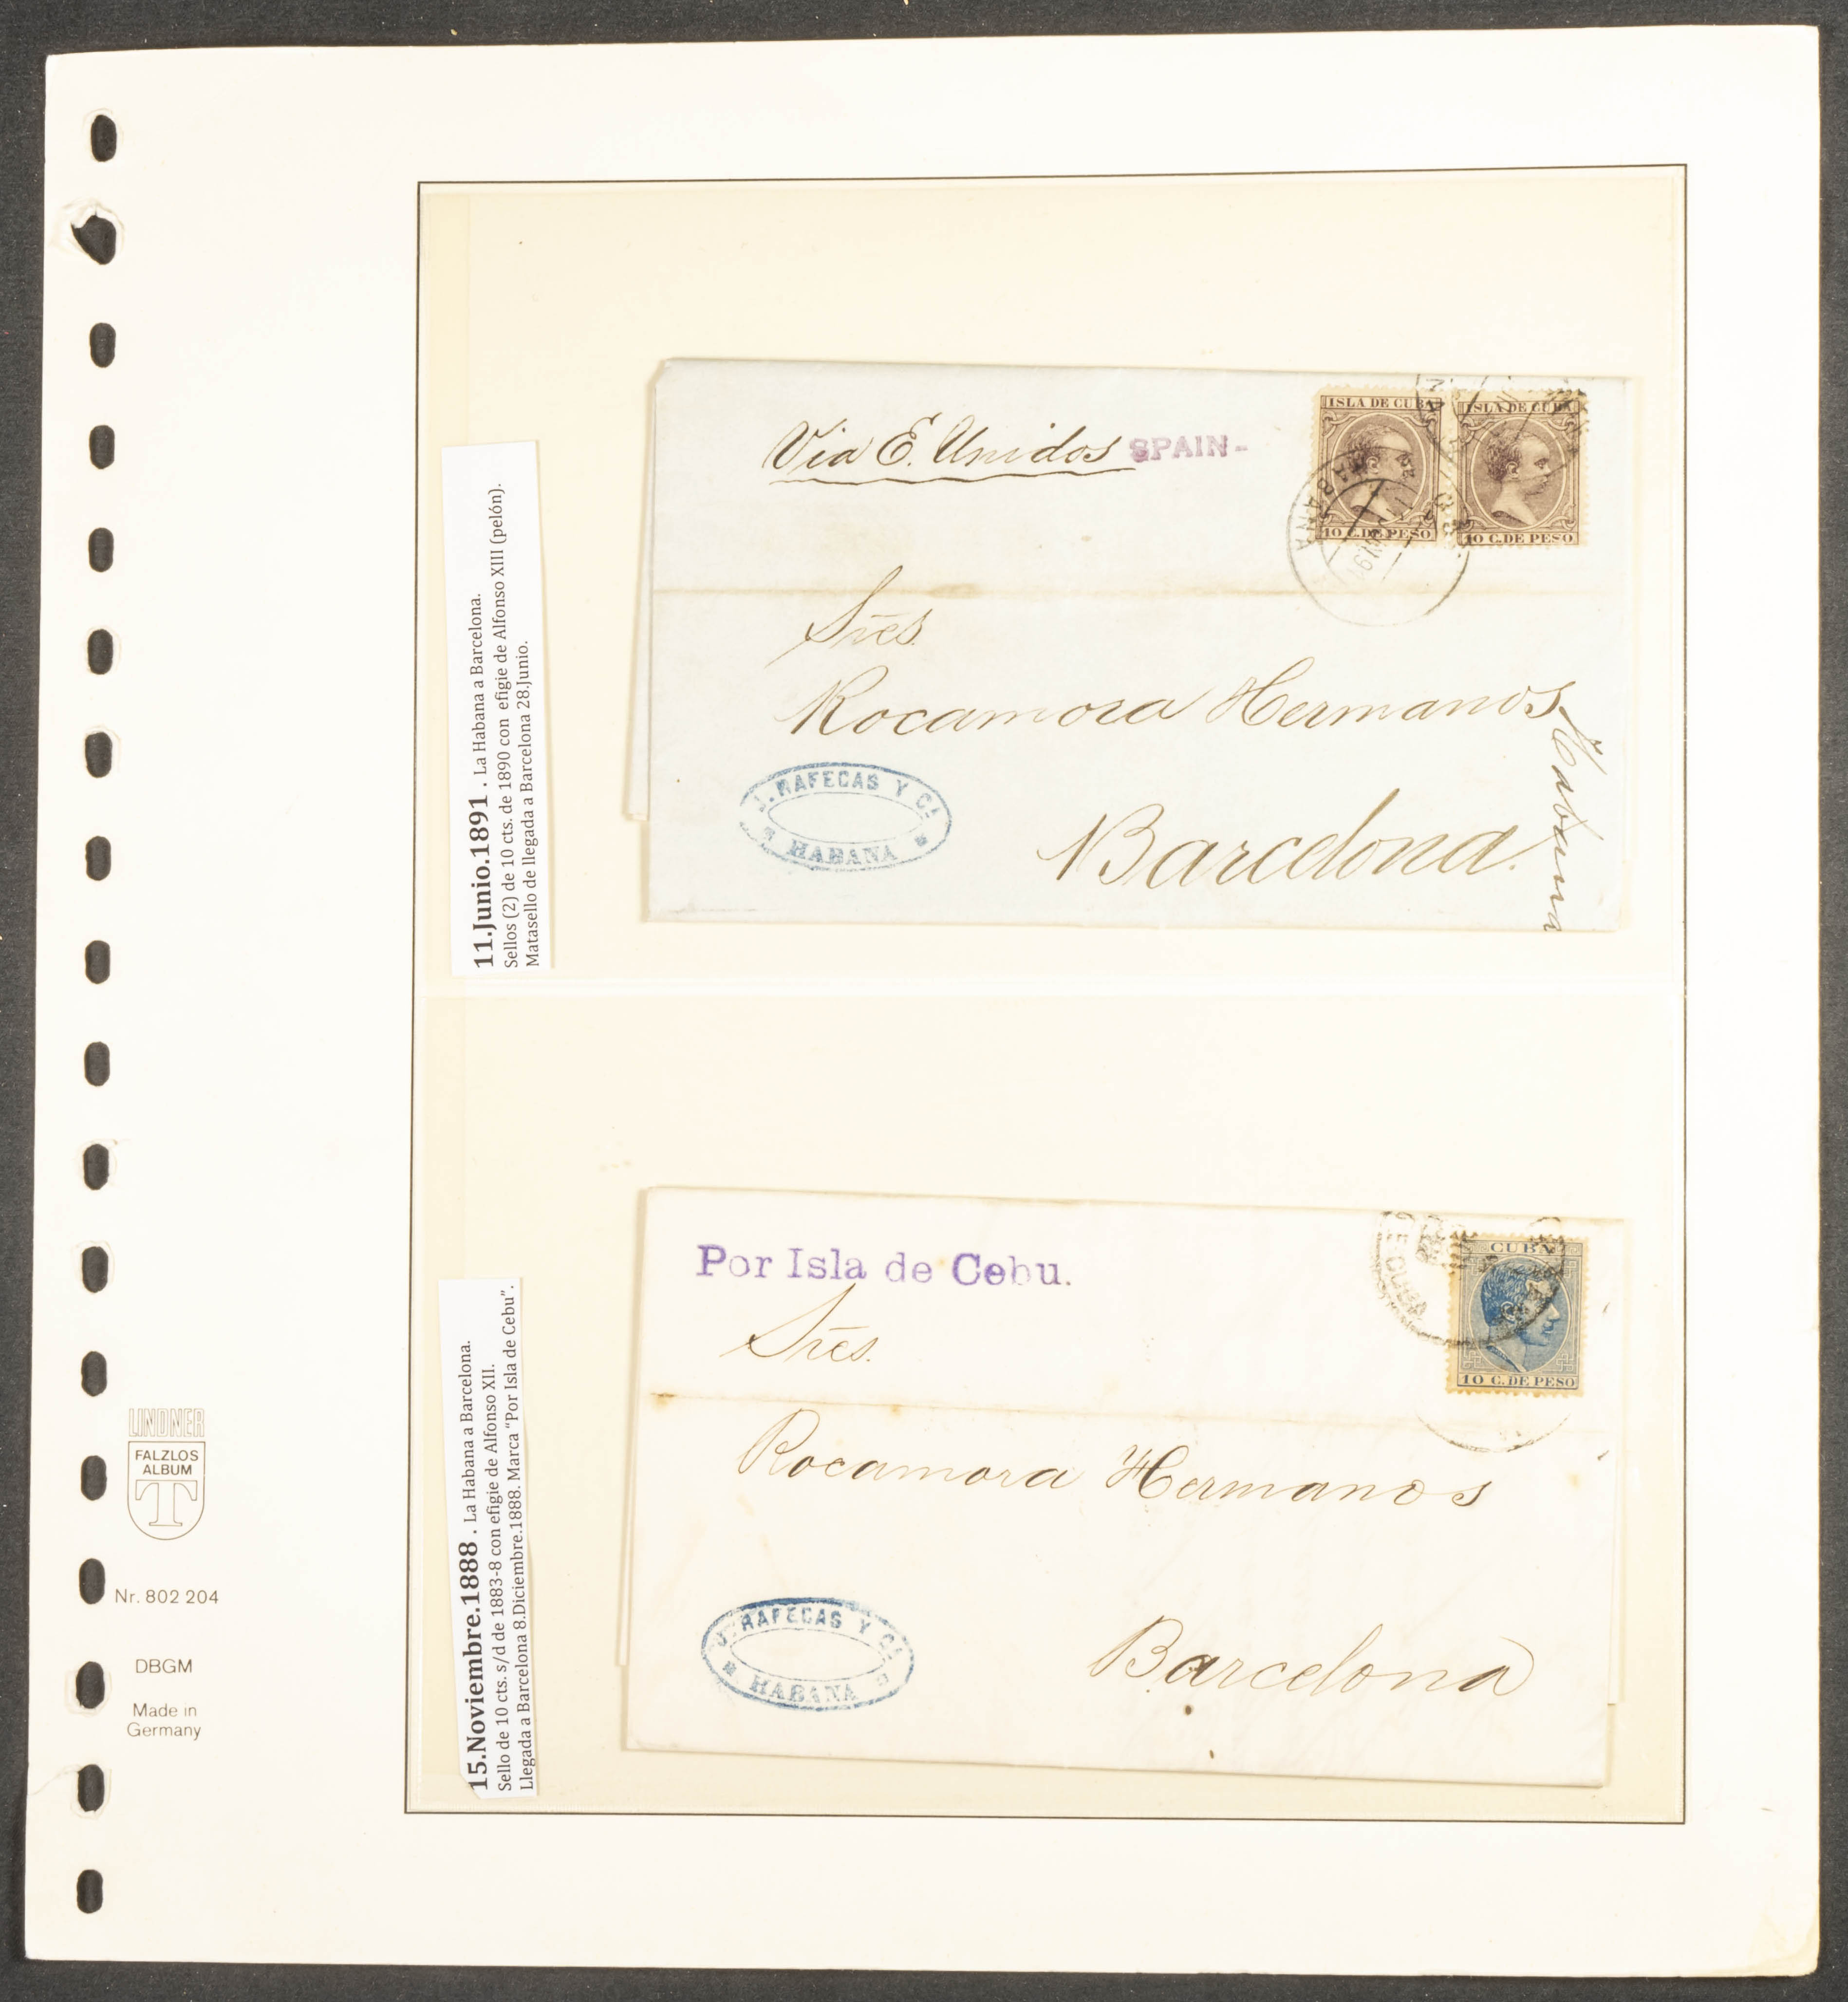 11.Junio.1891 . La Habana a Barcelona.
Sellos (2) de 10 cts. de 1890 con efigie de Alfonso XIII (pelón).
Matasello de llegada a Barcelona 28.Junio.
Via E. Unidos SPAIN-
ISLA DE CUBA
10 C. DE PESO
ISLA DE CUBA
10 C. DE PESO
HABANA
11 JUN 91
Sres.
Rocamora Hermanos
J. RAFECAS Y Ca.
HABANA
Barcelona.
15.Noviembre.1888 . La Habana a Barcelona.
Sello de 10 cts. s/d de 1883-8 con efigie de Alfonso XII.
Llegada a Barcelona 8.Diciembre.1888. Marca "Por Isla de Cebu".
Por Isla de Cebu.
CUBA
10 C. DE PESO
Sres.
Rocamora Hermanos
J. RAFECAS Y Ca.
HABANA
Barcelona
LINDNER
FALZLOS
ALBUM
T
Nr. 802 204
DBGM
Made in
Germany